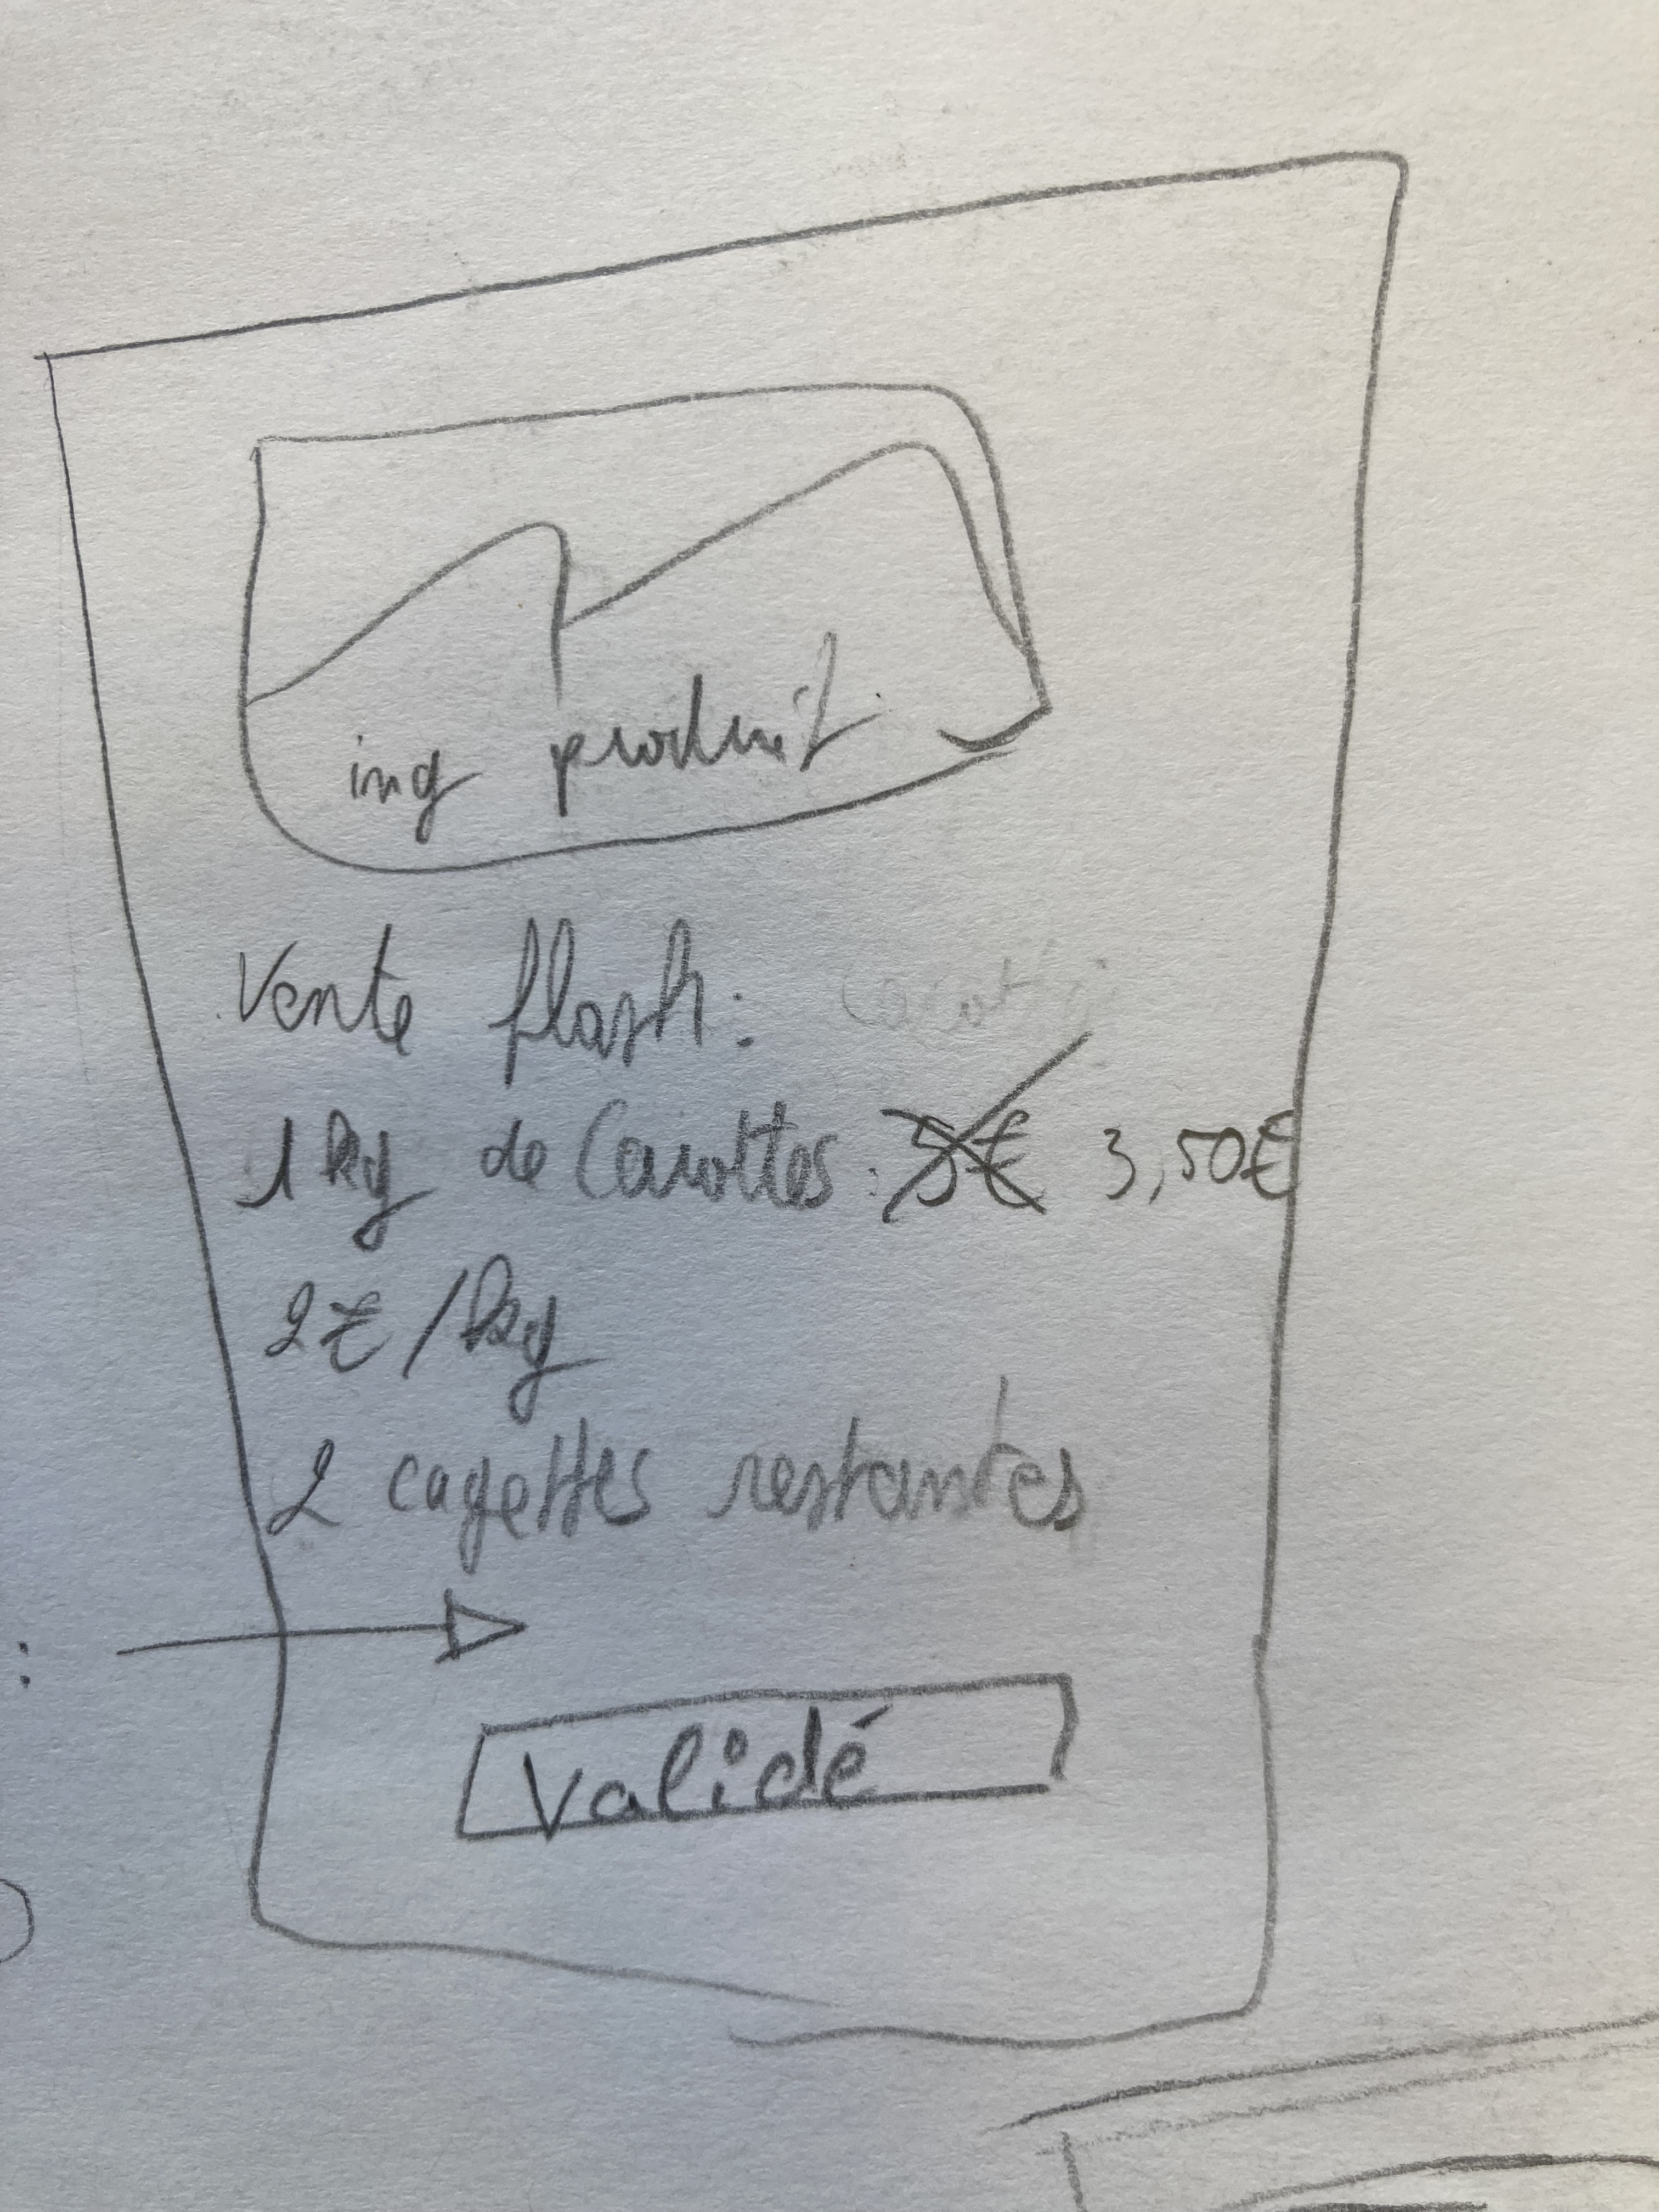 img produit
Vente flash:
1kg de Carottes: 5€ 3,50€
2€/kg
2 cagettes restantes
:
Validé